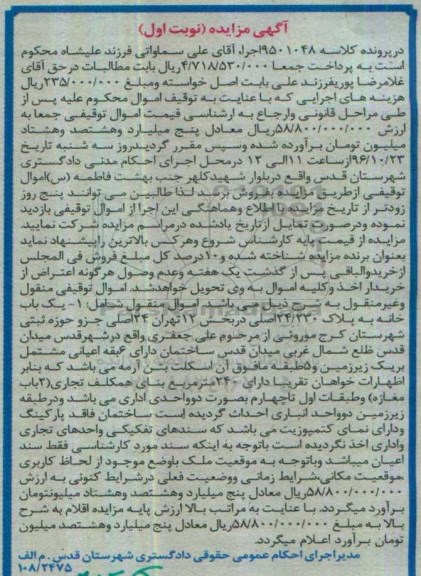 آگهی مزایده (نوبت اول)
درپرونده کلاسه ۹۵۰۱۰۴۸اجرا، آقای علی سماواتی فرزند علیشاه محکوم
است به پرداخت جمعا ۴/۷۱۸/۵۳۰/۰۰۰ریال بابت مطالبات درحق آقای
غلامرضا پوریفرزند علی بابت اصل خواسته ومبلغ ۲۳۵/۰۰۰/۰۰۰ریال
هزینه های اجرایی که با عنایت به توقیف اموال محکوم علیه پس از
طی مراحل قانونی وارجاع به ارشناسی قیمت اموال توقیفی جمعا به
ارزش ۵۸/۸۰۰/۰۰۰/۰۰۰ریال معادل پنج میلیارد وهشتصد وهشتاد
میلیون تومان برآورده شده وسپس مقرر گردیدروز سه شنبه تاریخ
۹۶/۱۰/۲۳ازساعت ۱۱الی ۱۲ درمحل اجرای احکام مدنی دادگستری
شهرستان قدس واقع دربلوار شهیدکلهر جنب بهشت فاطمه (س)اموال
توقیفی ازطریق مزایده بفروش برسد لذا طالبین می توانند پنج روز
زودتر از تاریخ مزایده با اطلاع وهماهنگی این اجرا از اموال توقیفی بازدید
نموده ودرصورت تمایل ازتاریخ یادشده درمراسم مزایده شرکت نمایید
مزایده از قیمت پایه کارشناس شروع وهرکس بالاترین راپیشنهاد نماید
بعنوان برنده مزایده شناخته شده و۱۰درصد کل مبلغ فروش فی المجلس
ازخریدوالباقی پس از گذشت یک هفته وعدم وصول هرگونه اعتراض از
خریدار اخذ وکلیه اموال به وی تحویل خواهدشد. اموال توقیفی منقول
وغیرمنقول به شرح ذیل می باشد. اموال منقول شامل: ۱- یک باب
خانه به پلاک ۲۴/۲۳۰اصلی دربخش ۱۲تهران ۲۴اصلی جزو حوزه ثبتی
شهرستان کرج موروثی از مرحوم علی جعفری واقع درشهرقدس میدان
قدس ظلع شمال غربی میدان قدس ساختمان دارای ۶بقه اعیانی مشتمل
بریک زیرزمین و۵طبقه مافوق آن اسکلت بتن آرمه می باشد که بنابر
اظهارات خواهان تقریبا دارای ۲۴۰مترمربع بنای همکلف تجاری(۲باب
مغازه) وطبقات اول تاچهارم بصورت دوواحدی اداری می باشد ودرطبقه
زیرزمین دوواحد انباری احداث گردیده است ساختمان فاقد پارکینگ
ودارای نمای کتمپوزیت می باشد که سندهای تفکیکی واحدهای تجاری
واداری اخذ نگردیده است باتوجه به اینکه سند مورد کارشناسی فقط سند
اعیان میباشد وباتوجه به موقعیت ملک باوضع موجود از لحاظ کاربری
،موقعیت مکانی،شرایط زمانی ووضعیت فعلی درشرایط کنونی به ارزش
۵۸/۸۰۰/۰۰۰/۰۰۰ریال معادل پنج میلیارد وهشتصد وهشتاد میلیونتومان
برآورد میگردد. با عنایت به مراتب بالا ارزش پایه مزایده اقلام به شرح
بالا به مبلغ ۵۸/۸۰۰/۰۰۰/۰۰۰ریال معادل پنج میلیارد وهشتصد میلیون
تومان برآورد اعلام میگردد.
مدیراجرای احکام عمومی حقوقی دادگستری شهرستان قدس . م الف
۱۰۸/۲۴۷۵